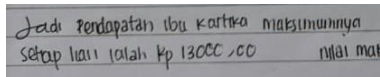 Jadi Pendapatan ibu kartika maksimumnya
setiap hari ialah Rp 13000,00 nilai mak